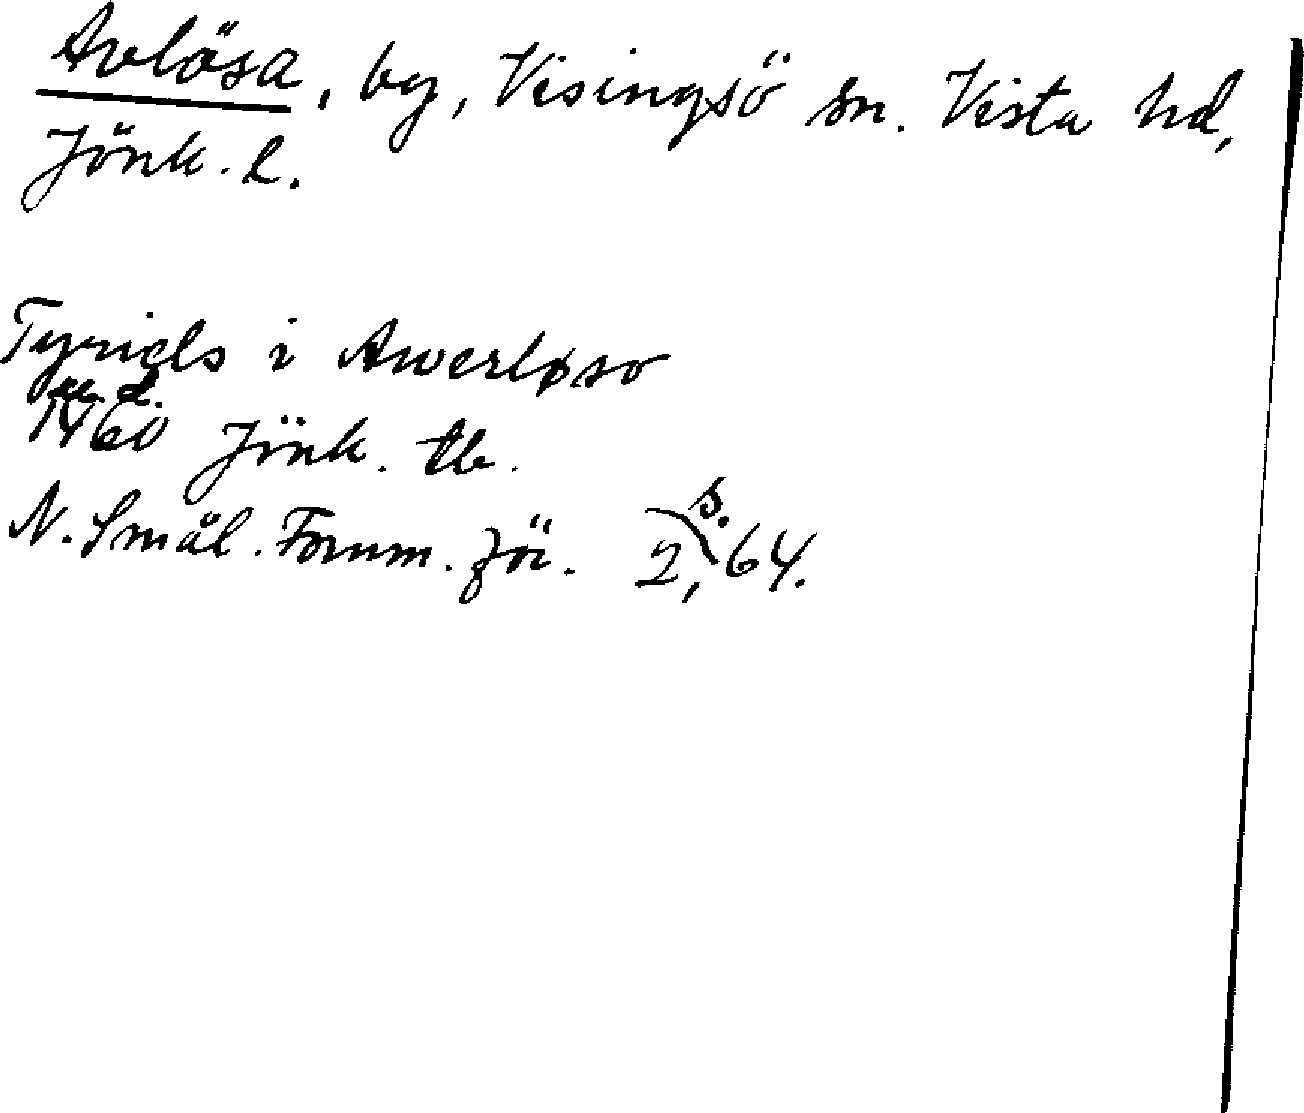 Avlösa, by, Visingsö sn. Vista hd,
Jönk. l.
Tyriels i Awerløso
1460 Jönk. tb.
N. Smål. Fornm. för. 2, s. 64.